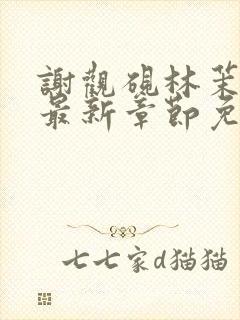 謝觀硯林茱
最新章節免
七七家d猫猫